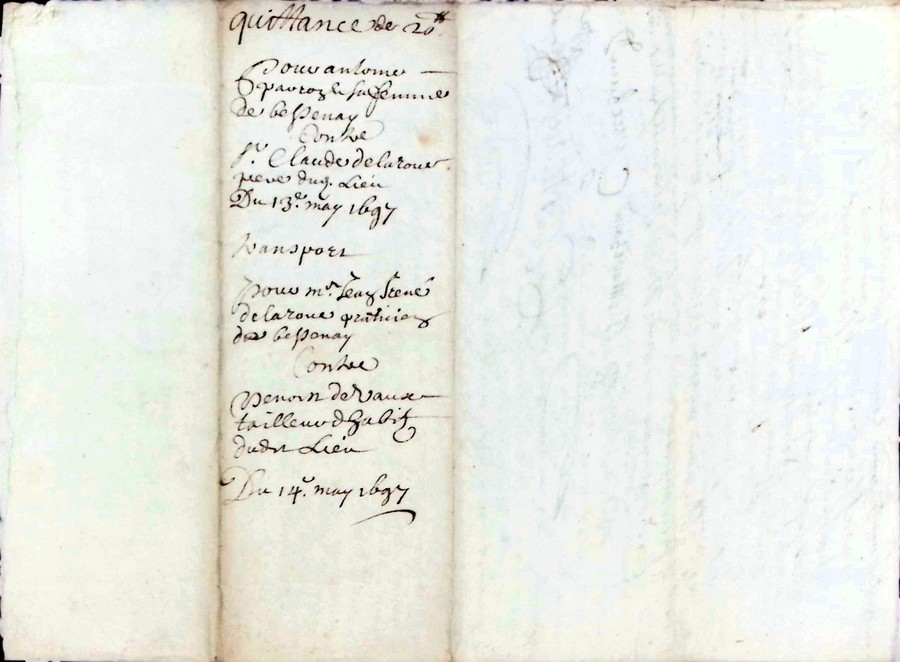 quittance de 20tt
Pour antoine
& sa femme
de bessenay
Contre
Sr. Claude delaroue
pere dud. Lieu
Du 13e may 1697
transport
pour mr. Jean
delaroue praticien
de bessenay
Contre
benoist de Vaux
tailleur d'habitz
dudit Lieu
Du 14e. may 1697